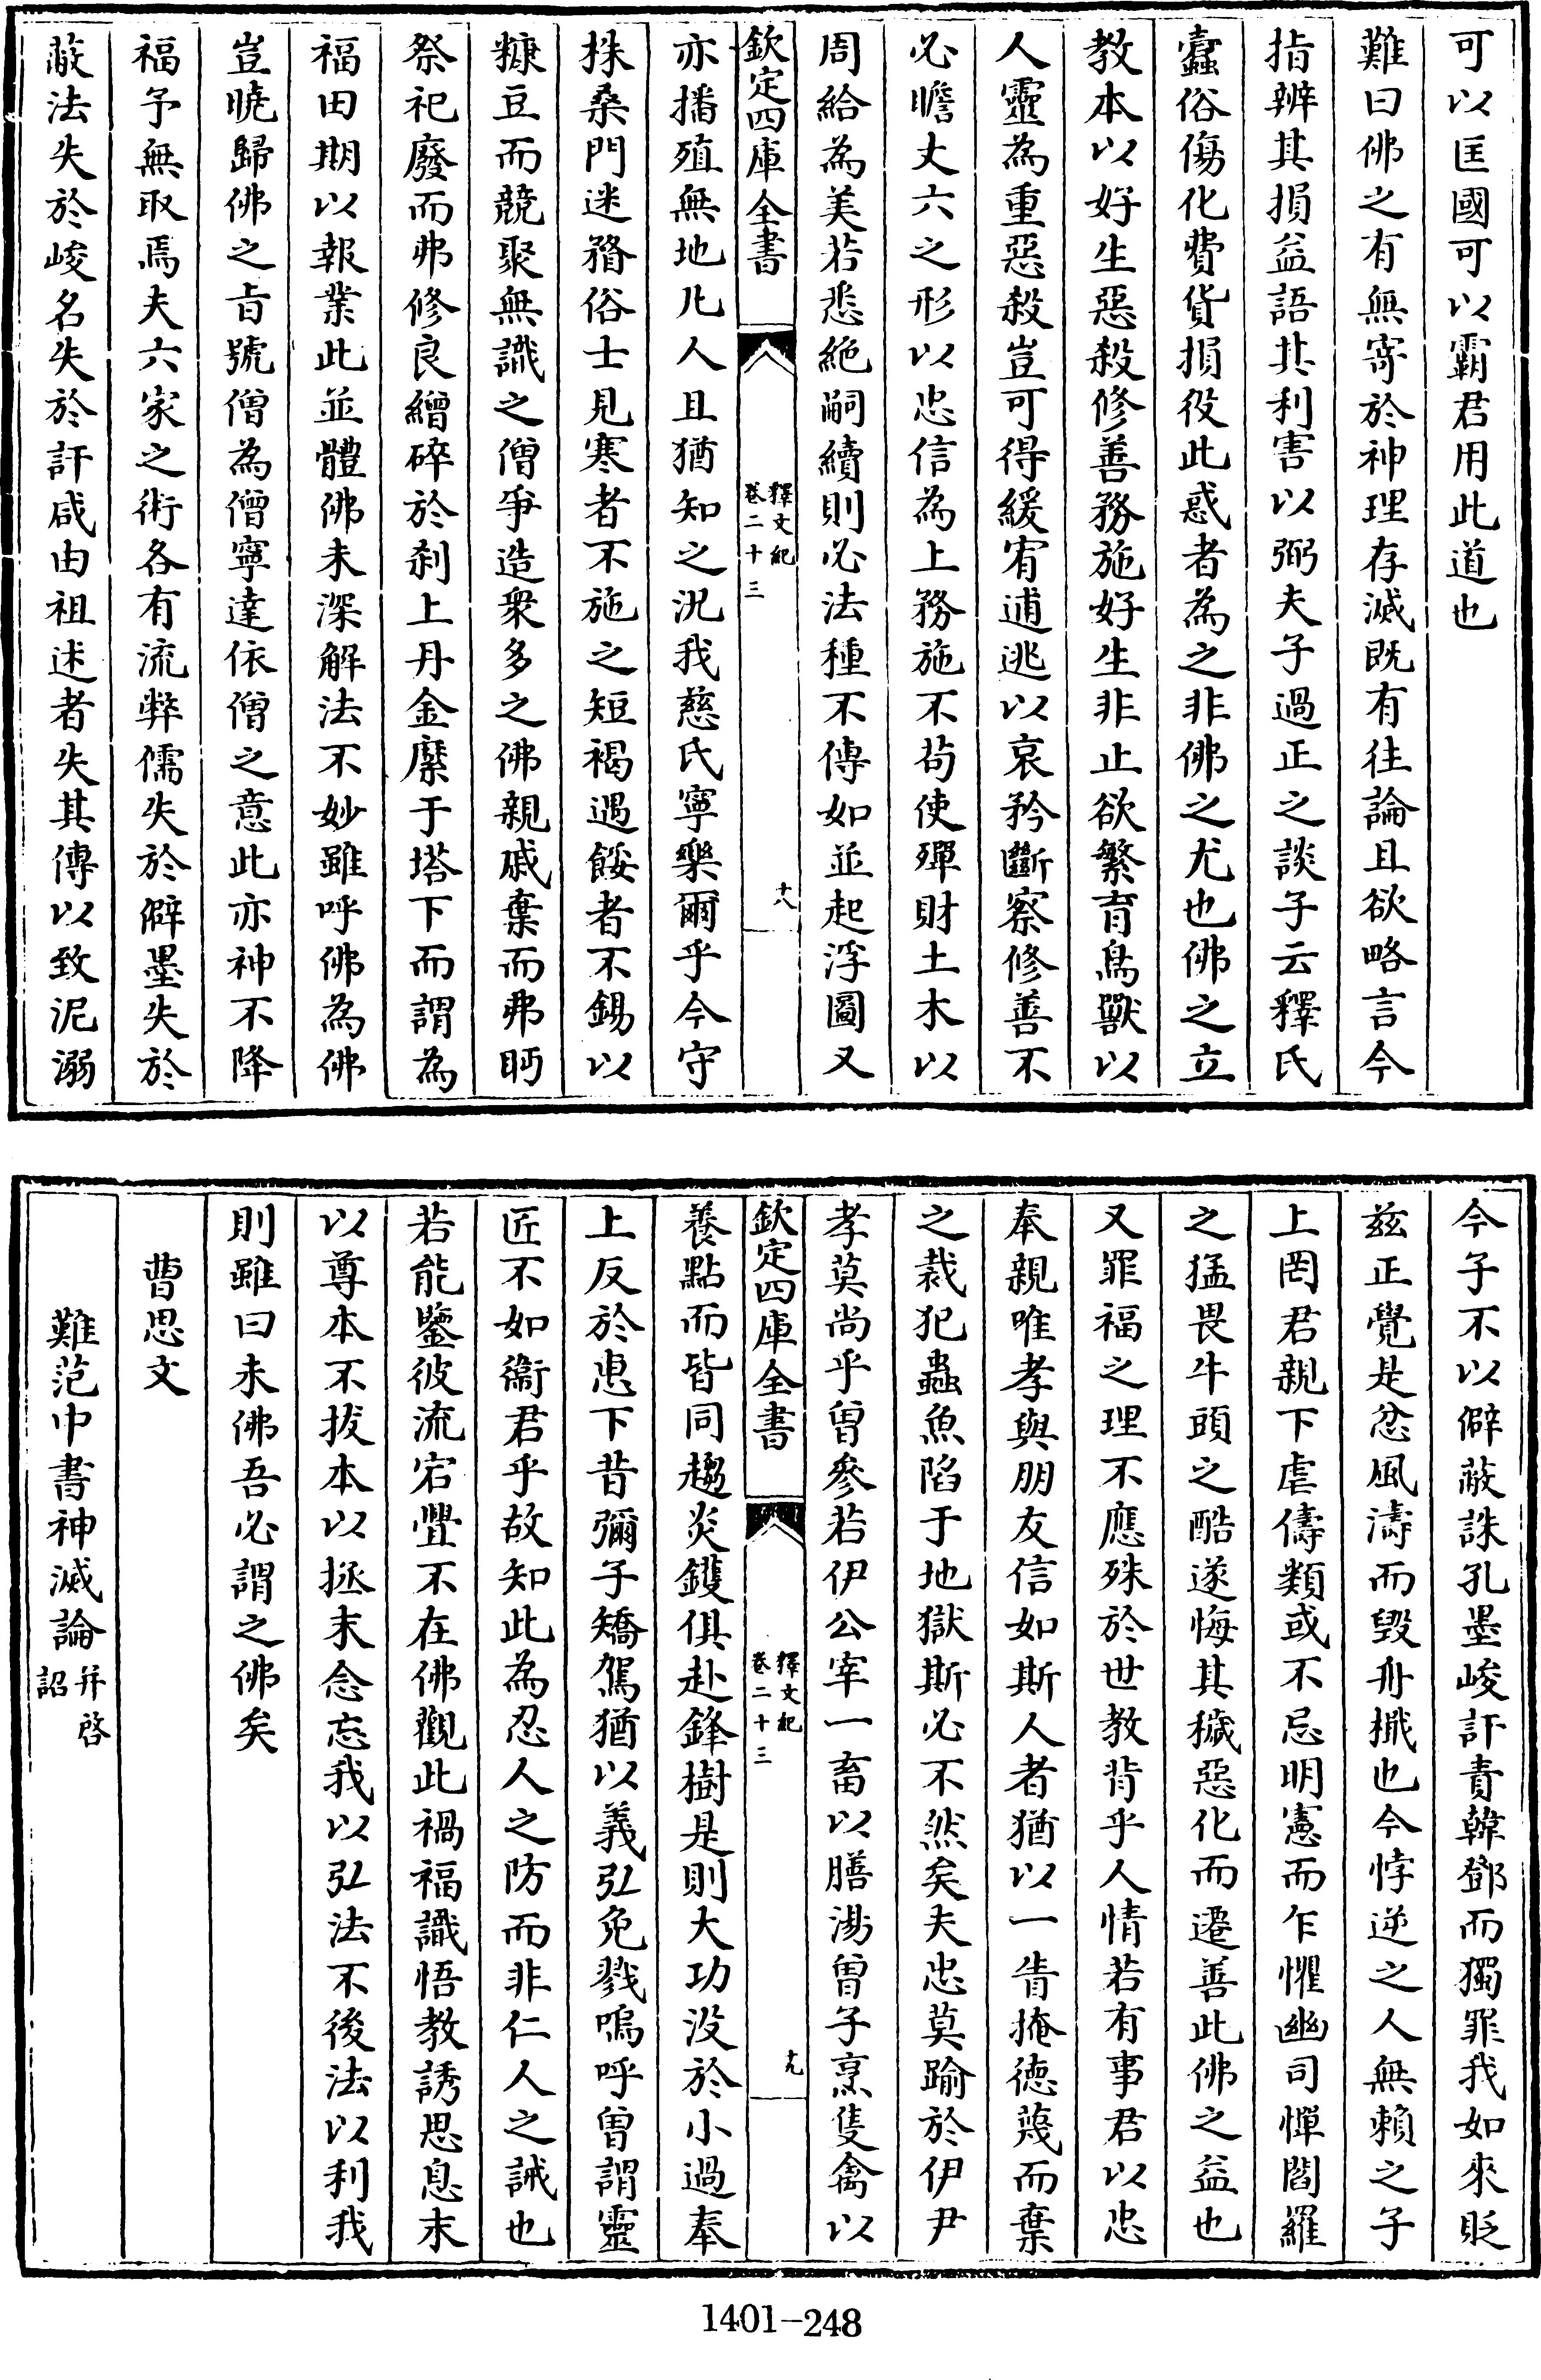 可以匡國可以霸君用此道也
難曰佛之有無寄於神理存滅既有往論且欲略言今
指辨其損益語其利害以弼夫子過正之談子云釋氏
蠹俗傷化費貨損役此惑者為之非佛之尤也佛之立
教本以好生惡殺修善務施好生非止欲繁育鳥獸以
人靈為重惡殺豈可得緩宥逋逃以哀矜斷察修善不
必瞻丈六之形以忠信為上務施不苟使殫財土木以
周給為美若悉絶嗣續則必法種不傳如並起浮圖又
欽定四庫全書
釋文紀
卷二十三
十八
亦播殖無地凡人且猶知之況我慈氏寧樂爾乎今守
株桑門迷瞀俗士見寒者不施之短褐遇餒者不錫以
糠豆而競聚無識之僧爭造衆多之佛親戚棄而弗眄
祭祀廢而弗修良繒碎於刹上丹金縻于塔下而謂為
福田期以報業此並體佛未深解法不妙雖呼佛為佛
豈曉歸佛之㫖號僧為僧寧達依僧之意此亦神不降
福予無取焉夫六家之術各有流弊儒失於僻墨失於
蔽法失於峻名失於訐咸由祖述者失其傳以致泥溺
今子不以僻蔽誅孔墨峻訐責韓鄧而獨罪我如來貶
兹正覺是忿風濤而毀舟檝也今悖逆之人無賴之子
上罔君親下虐儔類或不忌明憲而乍懼幽司憚閻羅
之猛畏牛頭之酷遂悔其穢惡化而遷善此佛之益也
又罪福之理不應殊於世教背乎人情若有事君以忠
奉親唯孝與朋友信如斯人者猶以一眚掩德蔑而棄
之裁犯蟲魚陷于地獄斯必不然矣夫忠莫踰於伊尹
孝莫尚乎曾參若伊公宰一畜以膳湯曾子烹隻禽以
欽定四庫全書
釋文紀
卷二十三
十九
養點而皆同趨炎鑊俱赴鋒樹是則大功没於小過奉
上反於惠下昔彌子矯駕猶以義弘免戮嗚呼曾謂靈
匠不如衞君乎故知此為忍人之防而非仁人之誡也
若能鑒彼流宕舋不在佛觀此禍福識悟教誘思息末
以尊本不拔本以拯末念忘我以弘法不後法以利我
則雖曰未佛吾必謂之佛矣
曹思文
難范中書神滅論并啓
詔
1401-248